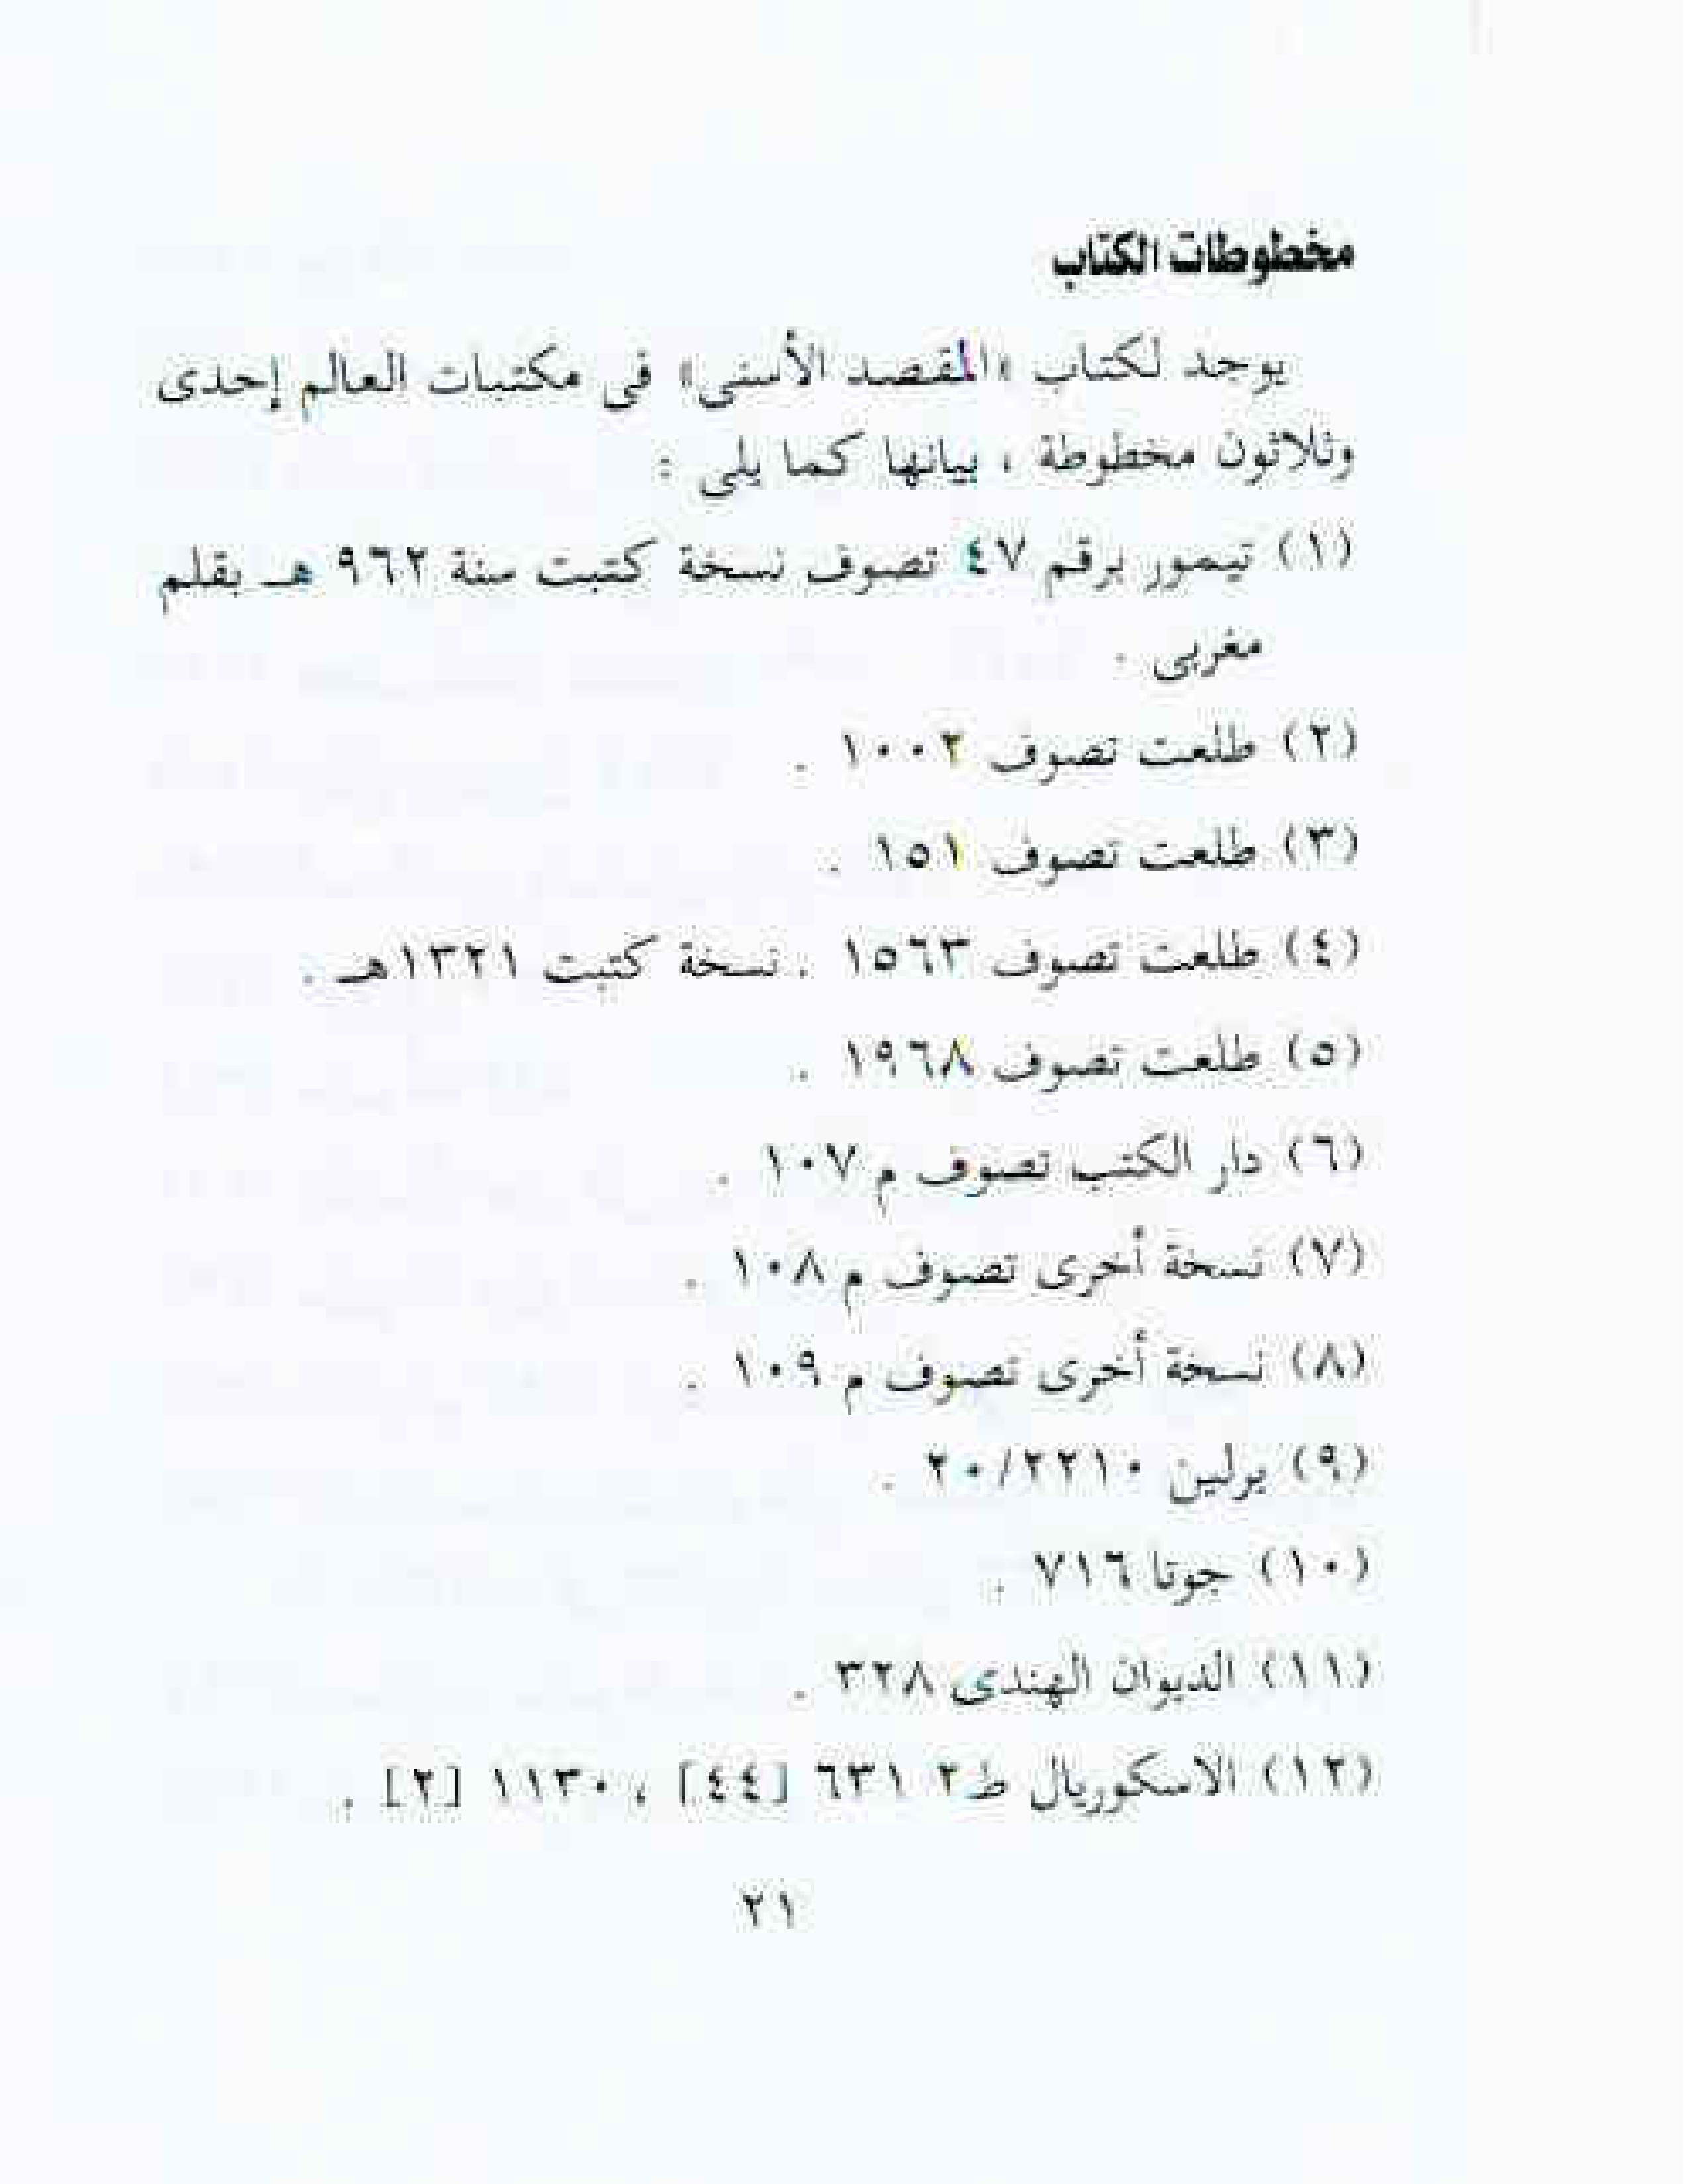 مخطوطات الكتاب
يوجد لكتاب «المقصد الأسنى» فى مكتبات العالم إحدى
وثلاثون مخطوطة ، بيانها كما يلى :
(١) تيمور برقم ٤٧ تصوف نسخة كتبت سنة ٩٦٢ هـ بقلم
مغربى .
(٢) طلعت تصوف ١٠٠٢ .
(٣) طلعت تصوف ١٥١ .
(٤) طلعت تصوف ١٥٦٣ . نسخة كتبت ١٣٢١هـ .
(٥) طلعت تصوف ١٩٦٨ .
(٦) دار الكتب تصوف م ١٠٧ .
(٧) نسخة أخرى تصوف م ١٠٨ .
(٨) نسخة أخرى تصوف م ١٠٩ .
(٩) برلين ٢٠/٢٢١٠ .
(١٠) جوتا ٧١٦ .
(١١) الديوان الهندى ٣٢٨ .
(١٢) الاسكوريال ط٢ ٦٣١ [٤٤] ، ١١٣٠ [٢] .
٢١